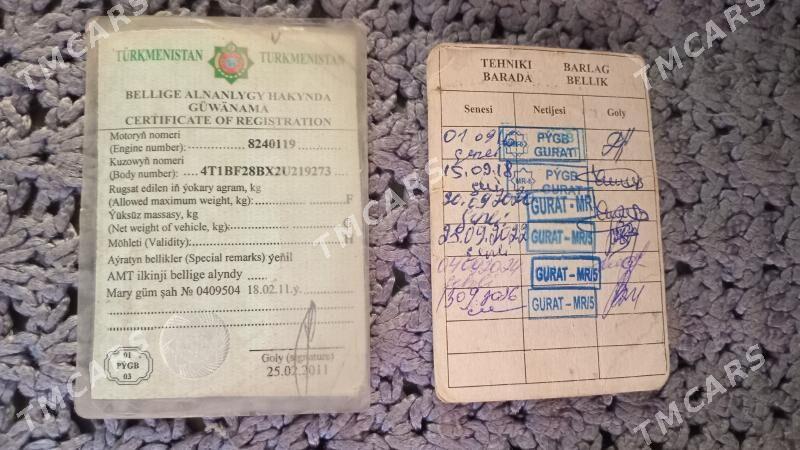 TÜRKMENISTAN TURKMENISTAN
BELLIGE ALNANLYGY HAKYNDA
GÜWÄNAMA
CERTIFICATE OF REGISTRATION
Motoryň nomeri
(Engine number): 8240119
Kuzowyň nomeri
(Body number): 4T1BF28BX2U219273
Rugsat edilen iň ýokary agram, kg
(Allowed maximum weight, kg) F
Ýüksüz massasy, kg
(Net weight of vehicle, kg) G
Möhleti (Validity): H
Aýratyn bellikler (Special remarks) ýeňil
AMT ilkinji bellige alyndy
Mary güm şah № 0409504 18.02.11.ý.
01
PÝGB
03
Goly (signature)
25.02.2011
TEHNIKI BARLAG
BARADA BELLIK
Senesi Netijesi Goly
01.09
PÝGB
GURAT
15.09.18
MR-5
PÝGB
GURAT
GURAT-MR
23.09.2022
GURAT-MR/5
GURAT-MR/5
GURAT-MR/5
TMCARS
TMCARS
TMCARS
TMCARS
TMCARS
TMCARS